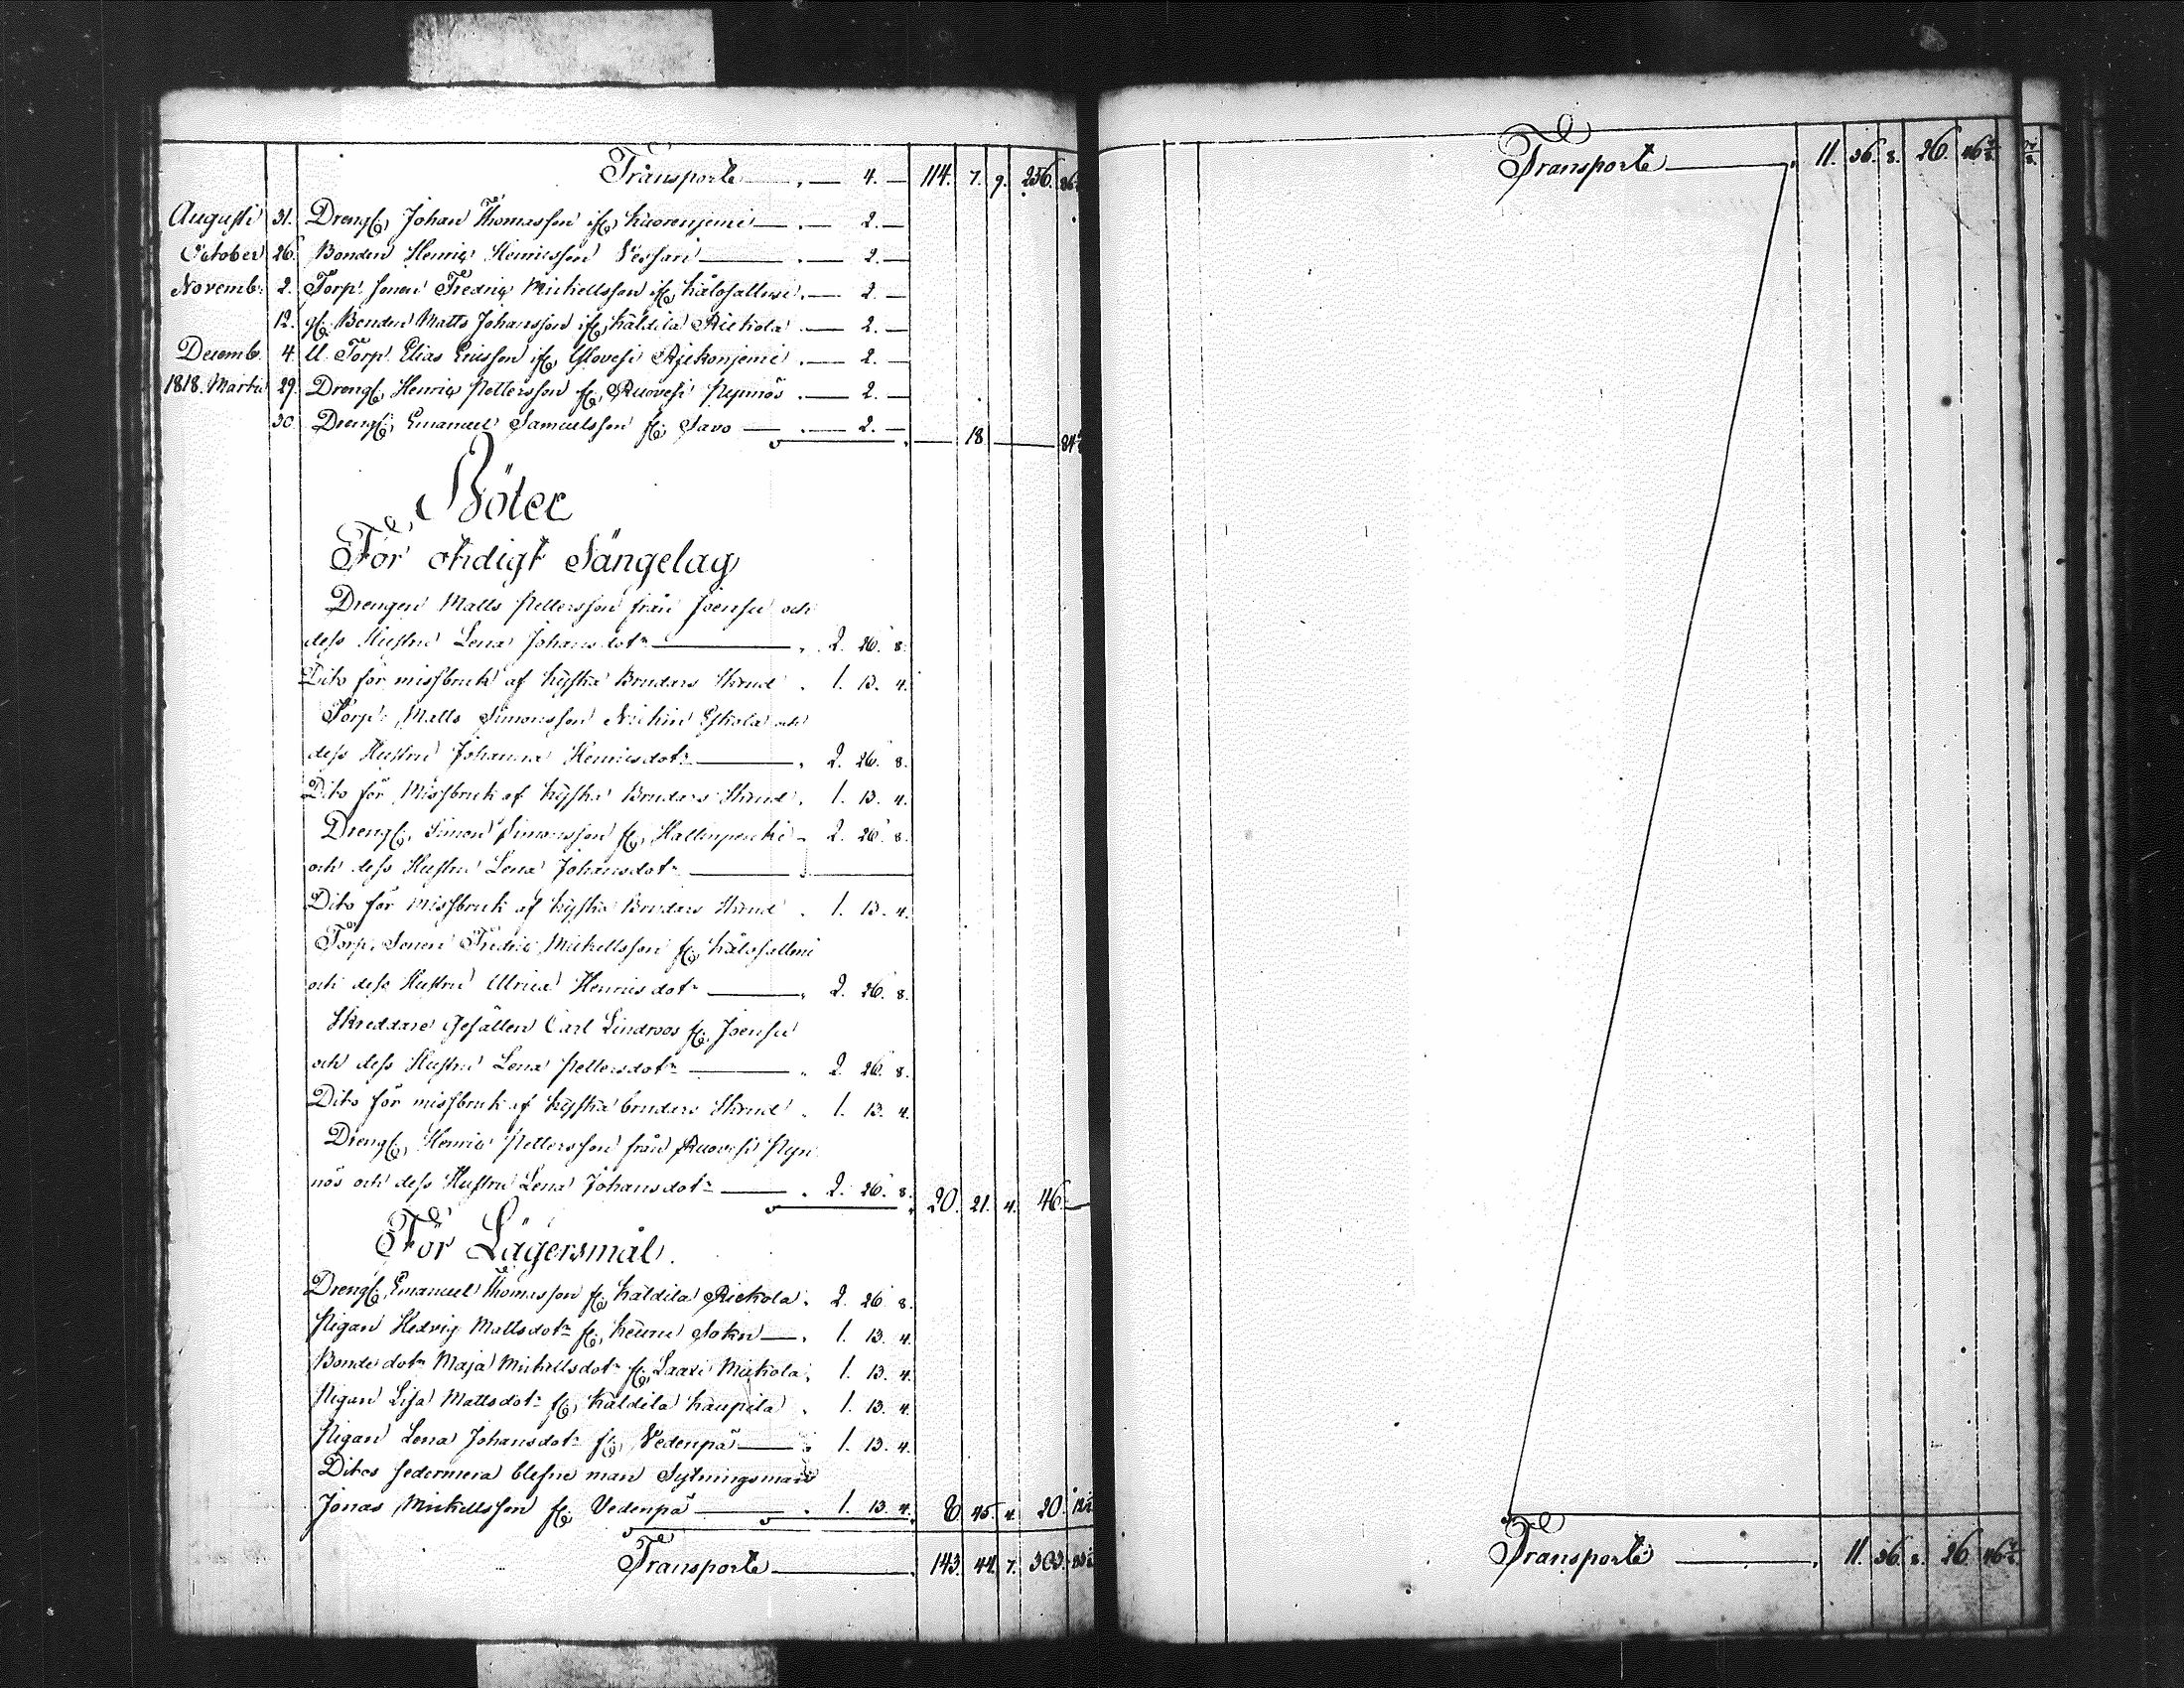 Transporte 4. 114. 7. 9. 256. 86
Augusti 31. Dreng fr. Johan Thomasson ifr. Kuorenjemi 2.
October 26. Bonden Henric Henricsson Vessari 2.
Novemb: 2. Torp. Sonen Fredric Mickellsson ifr. Kalosallmi 2.
12. gl. Bonden Matts Johansson ifr. Käldilä Rickola 2.
Decemb. 4. U. Torp. Elias Ericsson ifr. Ylövesi Rjekonjemi 2.
1818. Martii 29. Dreng fr. Henric Pettersson fr. Ruovesi Pynnös 2.
30 Dreng fr. Emanuel Samuelsson fr. Savo 2. 18 84
Böter
För otidigt Sängelag
Drengen Matts Pettersson från Joensu och
dess Hustru Lena Johansdotr 2. 26. 8.
Dito för missbruk af kyska Brudars Skrud 1. 13. 4.
Torp. Matts Simonsson Eskola och
dess Hustru Johanna Henricsdotr 2. 26. 8.
Dito för Missbruk af kyska Brudars Skrud 1. 13. 4.
Dreng fr. Simon Simonsson fr. 2. 26. 8.
och dess Hustru Lena Johansdotr
Dito för missbruk af kyska Brudars Skrud 1. 13. 4.
Torp. Sonen Fredric Mickellsson fr. Kalosallmi
och dess Hustru Ulrica Henricsdotr 2. 26. 8.
Skreddare Gesällen Carl Lindroos fr. Joensu
och dess Hustru Lena Pettersdotr 2. 26. 8.
Dito för missbruk af kyska brudars Skrud 1. 13. 4.
Dreng fr. Henric Pettersson från Ruovesi Pyn
nös och dess Hustru Lena Johansdotr 2. 26. 8. 20. 21. 4. 46.
För Lägersmål.
Dreng fr. Emanuel Thomasson fr. Käldilä Rickola 2. 26. 8.
Pigan Hedvig Mattsdotr fr. Keuru Sokn 1. 13. 4.
Bonde dotr Maja Mickellsdotr fr. Laaxi Mickola 1. 13. 4.
Pigan Lisa Mattsdotr fr. Käldilä Kaupila 1. 13. 4.
Pigan Lena Johansdotr fr. Vedenpä 1. 13. 4.
Ditos sedermera blefne man Sytningsman
Jonas Mickellsson fr. Vedenpä 1. 13. 4. 45. 4. 20.
Transporte 143. 44. 7. 303.
Transporte 11. 36. 8. 26. 46
Transporte 11. 36. 8. 26. 46